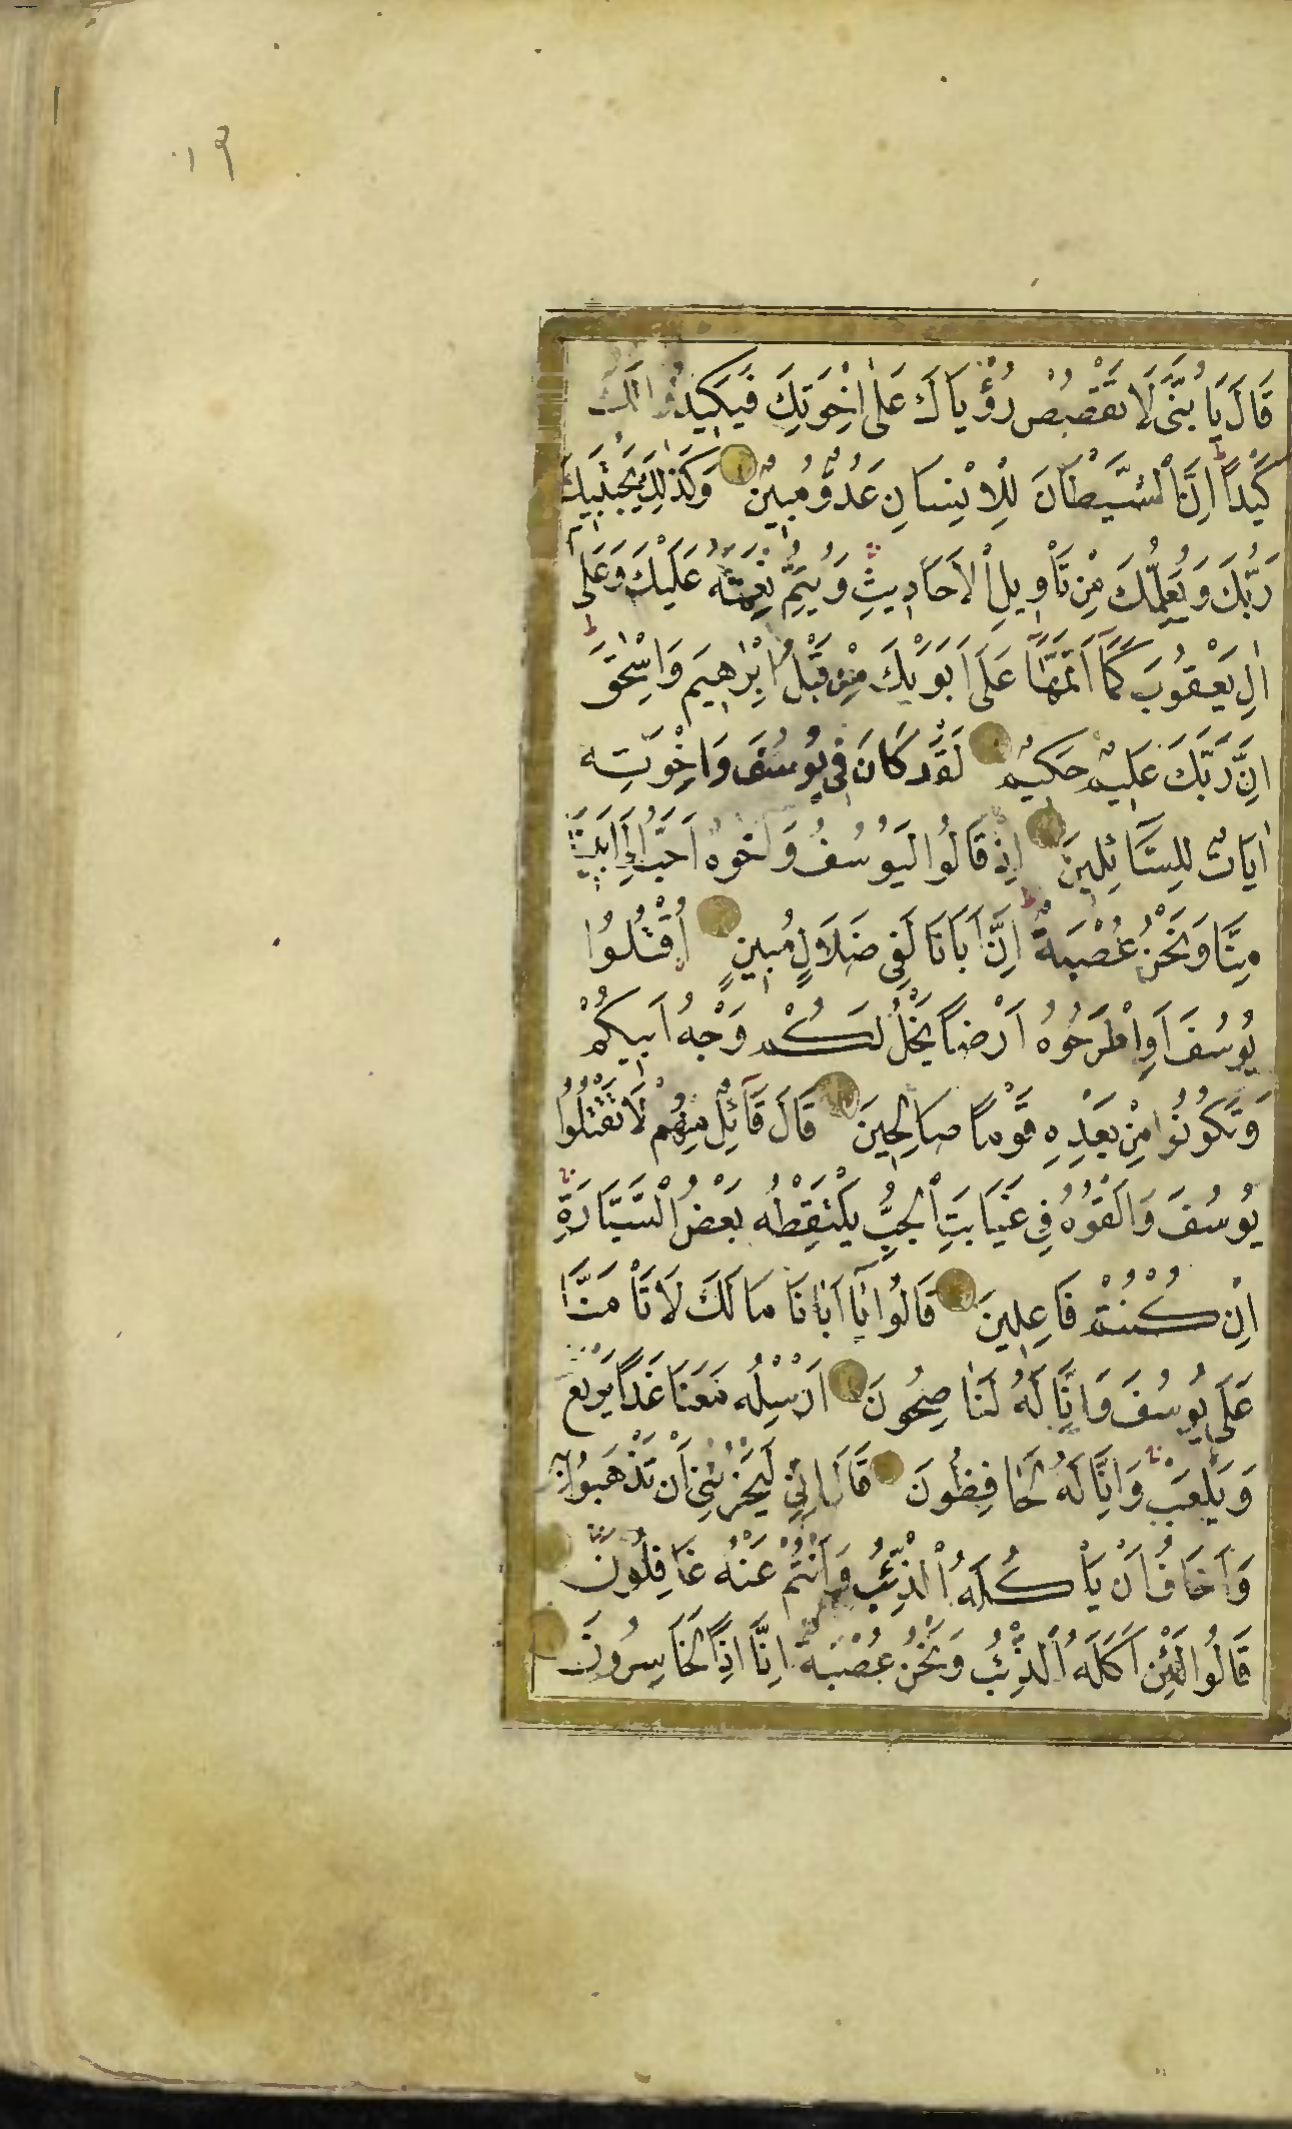 قَالَ يَا بُنَيَّ لَا تَقْصُصْ رُؤْيَاكَ عَلٰى اِخْوَتِكَ فَيَكِيدُوا لَكَ
كَيْدًا اِنَّ الشَّيْطَانَ لِلْاِنْسَانِ عَدُوٌّ مُبِينٌ وَكَذٰلِكَ يَجْتَبِيكَ
رَبُّكَ وَيُعَلِّمُكَ مِنْ تَأْوِيلِ الْاَحَادِيثِ وَيُتِمُّ نِعْمَتَهُ عَلَيْكَ وَعَلٰى
اٰلِ يَعْقُوبَ كَمَا اَتَمَّهَا عَلٰى اَبَوَيْكَ مِنْ قَبْلُ اِبْرٰهِيمَ وَاِسْحٰقَ
اِنَّ رَبَّكَ عَلِيمٌ حَكِيمٌ لَقَدْ كَانَ فِي يُوسُفَ وَاِخْوَتِهِ
اٰيَاتٌ لِلسَّائِلِينَ اِذْ قَالُوا لَيُوسُفُ وَاَخُوهُ اَحَبُّ اِلٰى اَبِينَا
مِنَّا وَنَحْنُ عُصْبَةٌ اِنَّ اَبَانَا لَفِي ضَلَالٍ مُبِينٍ اُقْتُلُوا
يُوسُفَ اَوِ اطْرَحُوهُ اَرْضًا يَخْلُ لَكُمْ وَجْهُ اَبِيكُمْ
وَتَكُونُوا مِنْ بَعْدِهِ قَوْمًا صَالِحِينَ قَالَ قَائِلٌ مِنْهُمْ لَا تَقْتُلُوا
يُوسُفَ وَاَلْقُوهُ فِي غَيَابَتِ الْجُبِّ يَلْتَقِطْهُ بَعْضُ السَّيَّارَةِ
اِنْ كُنْتُمْ فَاعِلِينَ قَالُوا يَا اَبَانَا مَا لَكَ لَا تَأْمَنَّا
عَلٰى يُوسُفَ وَاِنَّا لَهُ لَنَاصِحُونَ اَرْسِلْهُ مَعَنَا غَدًا يَرْتَعْ
وَيَلْعَبْ وَاِنَّا لَهُ لَحَافِظُونَ قَالَ اِنِّي لَيَحْزُنُنِي اَنْ تَذْهَبُوا بِهِ
وَاَخَافُ اَنْ يَأْكُلَهُ الذِّئْبُ وَاَنْتُمْ عَنْهُ غَافِلُونَ
قَالُوا لَئِنْ اَكَلَهُ الذِّئْبُ وَنَحْنُ عُصْبَةٌ اِنَّا اِذًا لَخَاسِرُونَ